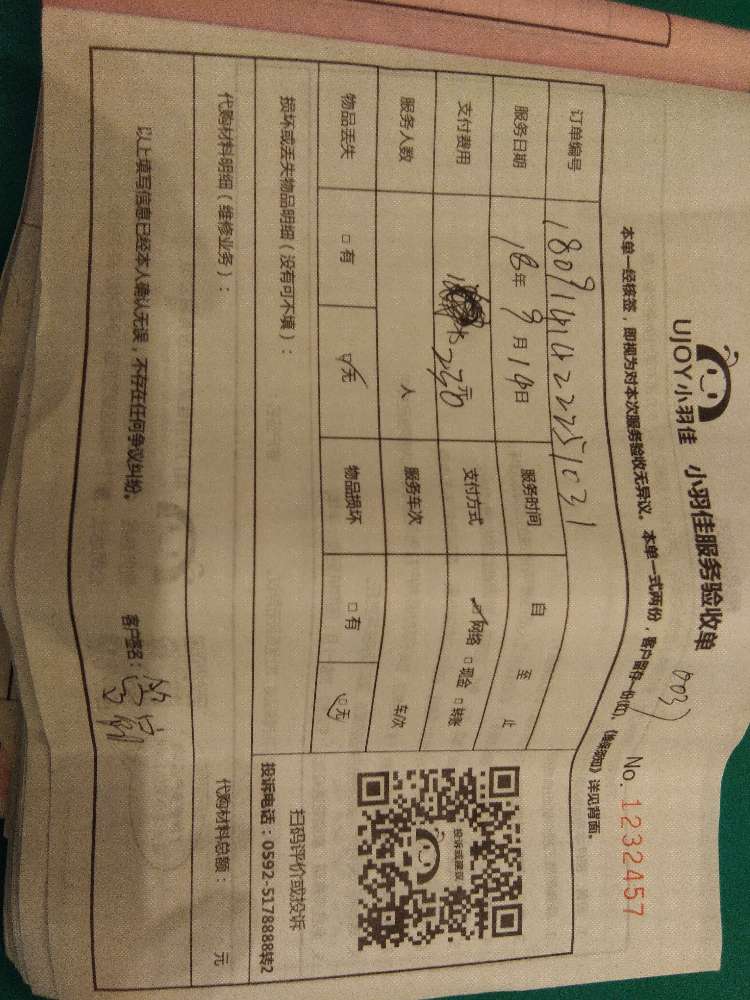 UJOY小羽佳 小羽佳服务验收单
No. 1232457
本单一经接签，即视为对本次服务验收无异议。本单一式两份，客户留存一份(次)，《维保须知》详见背面。
订单编号
服务日期 18年 9月 14日 服务时间 自 至 止
支付费用 230元 支付方式 网络 □现金 □转账
服务人数 人 服务车次 车/次
物品丢失 □有 □无 物品损坏 □有 □无
损坏或丢失物品明细（没有可不填）：
投诉或建议
扫码评价或投诉
投诉电话：0592-5178888转2
代购材料明细（维修业务）：
代购材料总额： 元
以上填写信息已经本人确认无误，不存在任何争议纠纷。 客户签名：